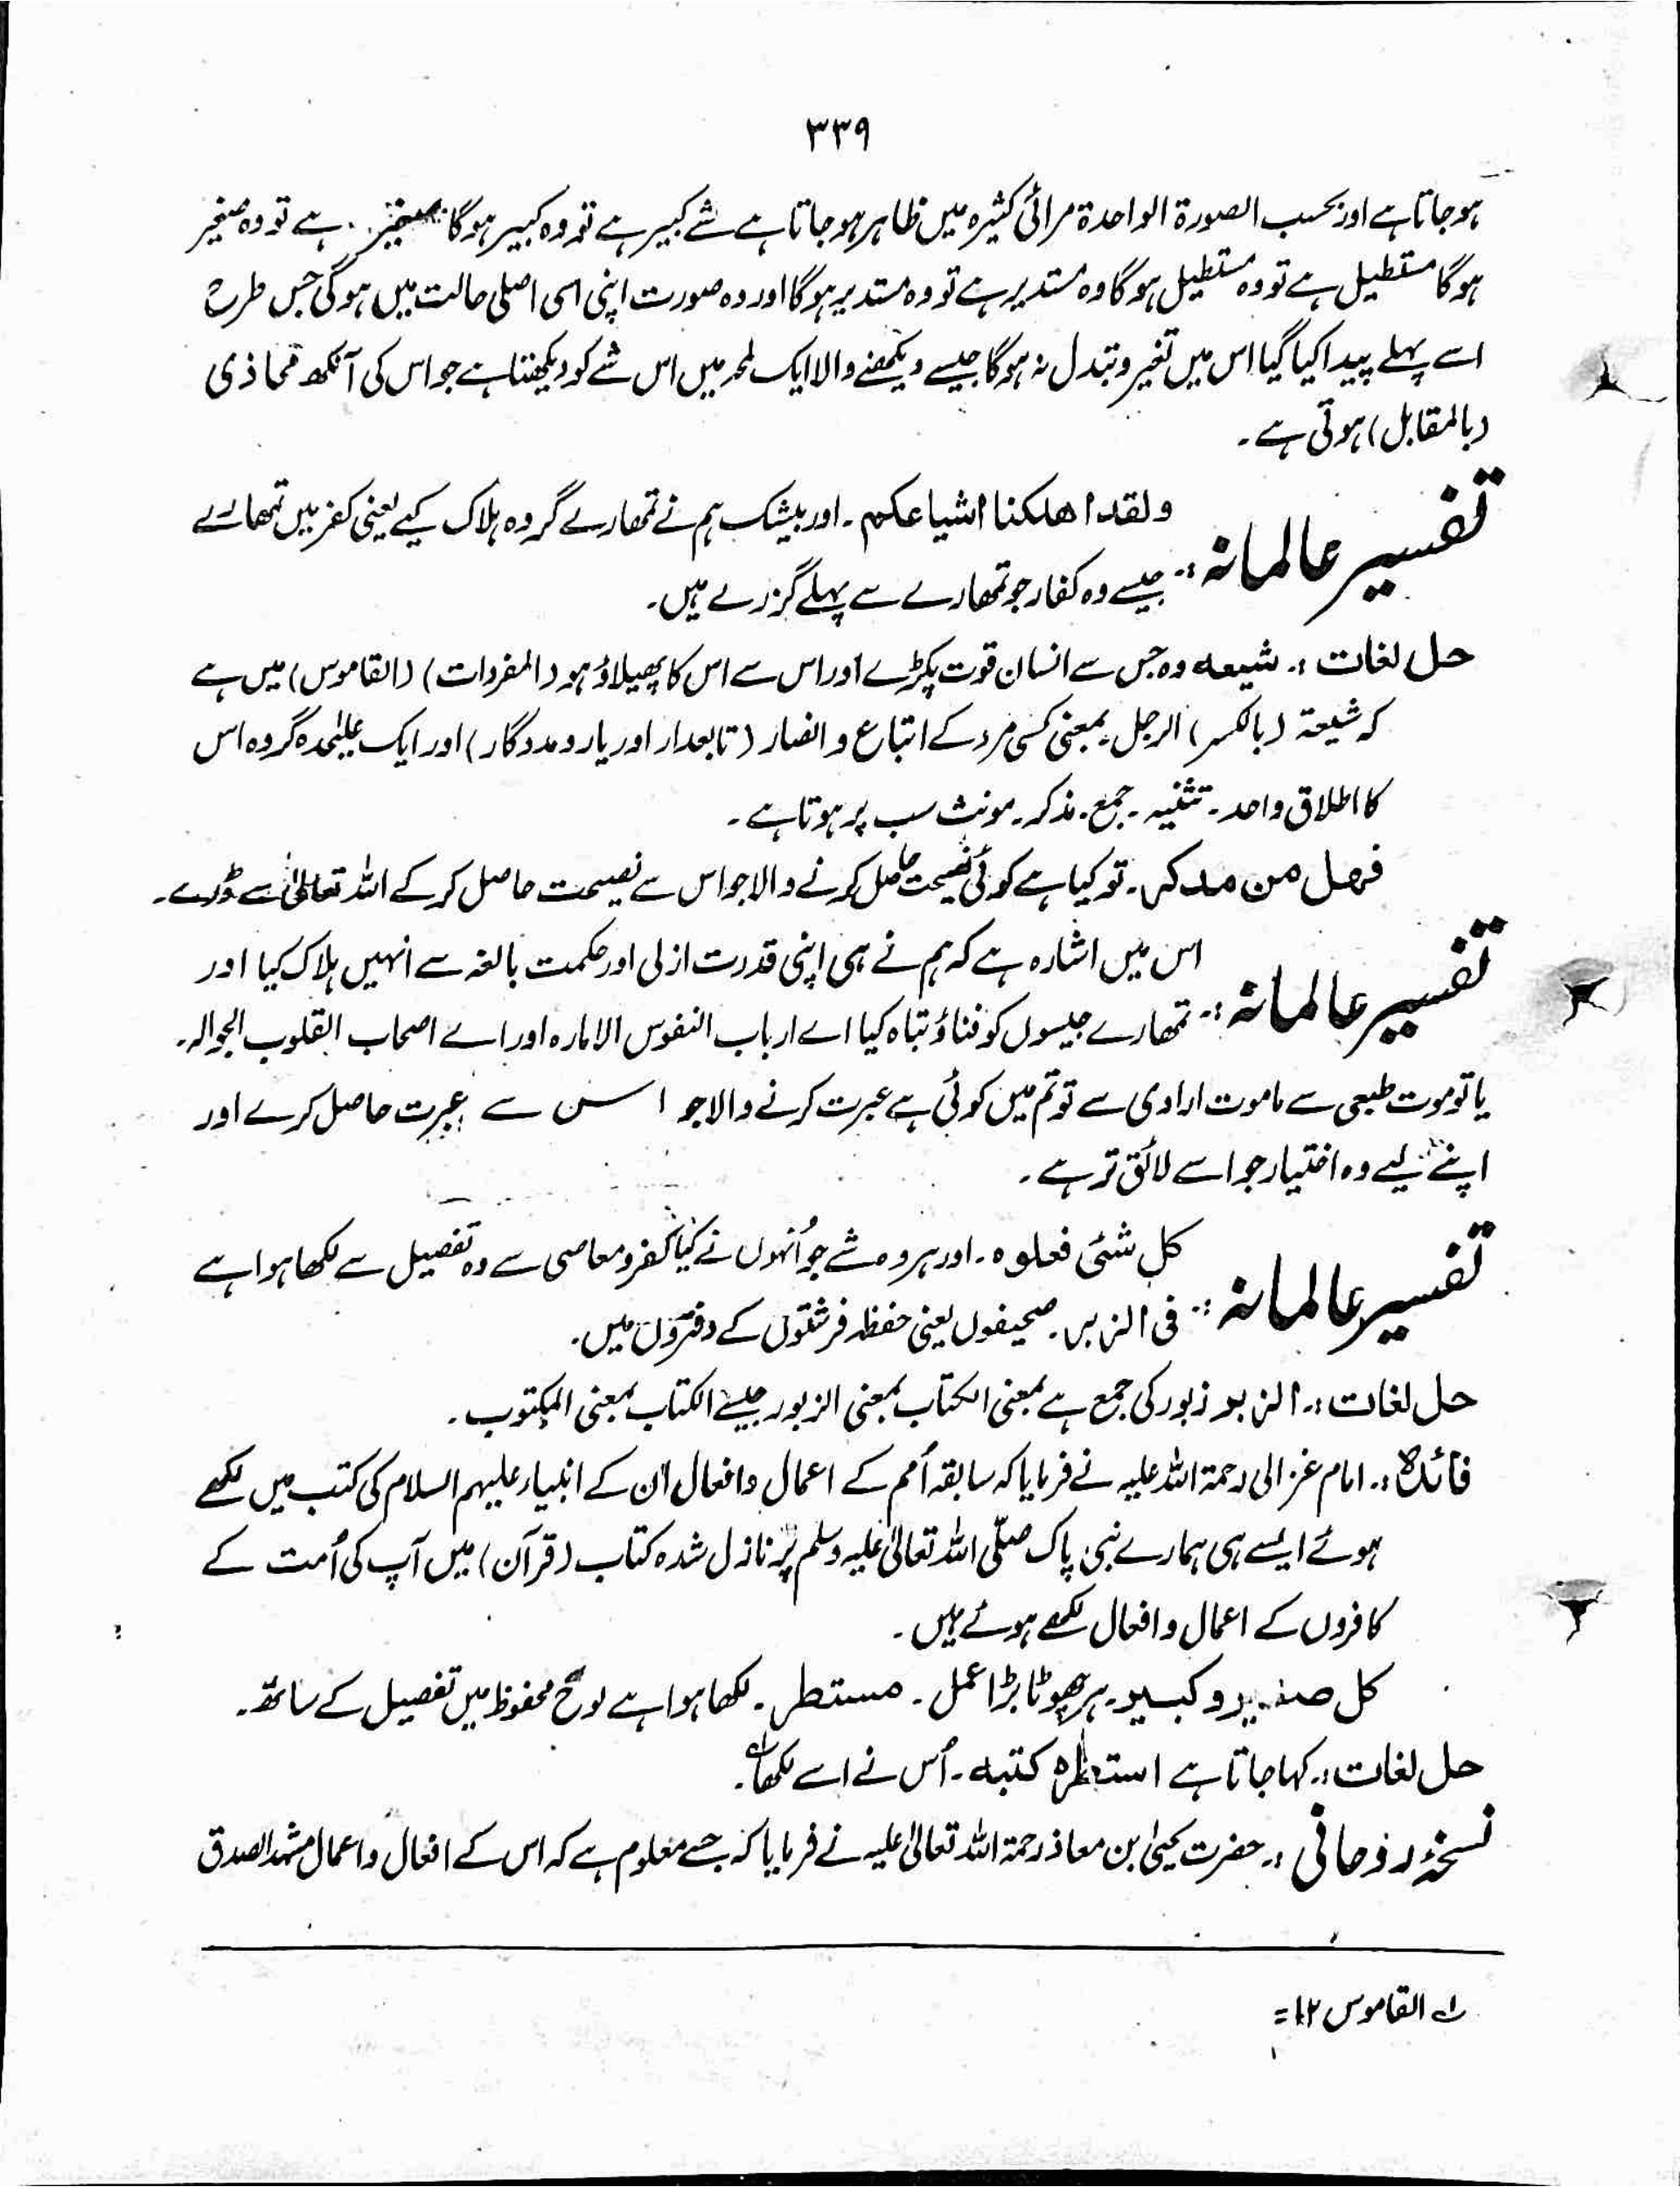 ۳۳۹
ہوجاتا ہے اور بحسب الصورۃ الواحدۃ مرائی کثیرہ میں ظاہر ہوجاتا ہے شے کبیر ہے تو وہ کبیر ہوگا صغیر ہے تو وہ صغیر
ہوگا مستطیل ہے تو وہ مستطیل ہوگا وہ مستدیر ہے تو وہ مستدیر ہوگا اور وہ صورت اپنی اسی اصلی حالت میں ہوگی جس طرح
اسے پہلے پیدا کیا گیا اس میں تغیر و تبدل نہ ہوگا جیسے دیکھنے والا ایک لمحہ میں اس شے کو دیکھتا ہے جو اس کی آنکھ محاذی
(بالمقابل) ہوتی ہے۔
تفسیر عالمانہ :۔ ولقد اھلکنا اشیاعکم ۔ اور بیشک ہم نے تمھارے گروہ ہلاک کیے یعنی کفر میں تمھارے
جیسے وہ کفار جو تمھارے سے پہلے گزرے ہیں۔
حل لغات :۔ شیعہ وہ جس سے انسان قوت پکڑے اور اس سے اس کا پھیلاؤ ہو (المفردات) (القاموس) میں ہے
کہ شیعۃ (بالکسر) الرجل بمعنی کسی مرد کے اتباع و انصار (تابعدار اور یار و مددگار) اور ایک علیٰحدہ گروہ اس
کا اطلاق واحد ۔ تثنیہ ۔ جمع ۔ مذکر ۔ مونث سب پر ہوتا ہے ۔
فھل من مدکر ۔ تو کیا ہے کوئی نصیحت حاصل کرنے والا جو اس سے نصیحت حاصل کر کے اللہ تعالیٰ سے ڈرے ۔
تفسیر عالمانہ :۔ اس میں اشارہ ہے کہ ہم نے ہی اپنی قدرت ازلی اور حکمت بالغہ سے انہیں ہلاک کیا اور
تمھارے جیسوں کو فناؤ تباہ کیا اے ارباب النفوس الامارہ اور اے اصحاب القلوب الجوالہ۔
یا تو موت طبعی سے یا موت ارادی سے تو تم میں کوئی ہے عبرت کرنے والا جو اس سے عبرت حاصل کرے اور
اپنے لیے وہ اختیار جو اسے لائق تر ہے ۔
تفسیر عالمانہ :۔ کل شئی فعلوہ ۔ اور ہر وہ شے جو اُنہوں نے کیا کفر و معاصی سے وہ تفصیل سے لکھا ہوا ہے
فی الزبر ۔ صحیفوں یعنی حفظہ فرشتوں کے دفتروں میں۔
حل لغات :۔ الزبو زبور کی جمع ہے بمعنی الکتاب بمعنی الزبور جیسے الکتاب بمعنی المکتوب ۔
فائدہ :۔ امام غزالی رحمۃ اللہ علیہ نے فرمایا کہ سابقہ اُمم کے اعمال وافعال ان کے انبیاء علیہم السلام کی کتب میں لکھے
ہوئے ایسے ہی ہمارے نبی پاک صلّی اللہ تعالیٰ علیہ وسلم پر نازل شدہ کتاب (قرآن) میں آپ کی اُمت کے
کافروں کے اعمال و افعال لکھے ہوئے ہیں ۔
کل صغیر و کبیر ۔ ہر چھوٹا بڑا عمل ۔ مستطر ۔ لکھا ہوا ہے لوح محفوظ میں تفصیل کے ساتھ ۔
حل لغات :۔ کہا جاتا ہے استطرہ کتبہ ۔ اُس نے اسے لکھا ؎۱۔
نسخۂ روحانی :۔ حضرت یحییٰ بن معاذ رحمۃ اللہ تعالیٰ علیہ نے فرمایا کہ جسے معلوم ہے کہ اس کے افعال و اعمال مشہد الصدق
؎۱ القاموس ۱۲ =